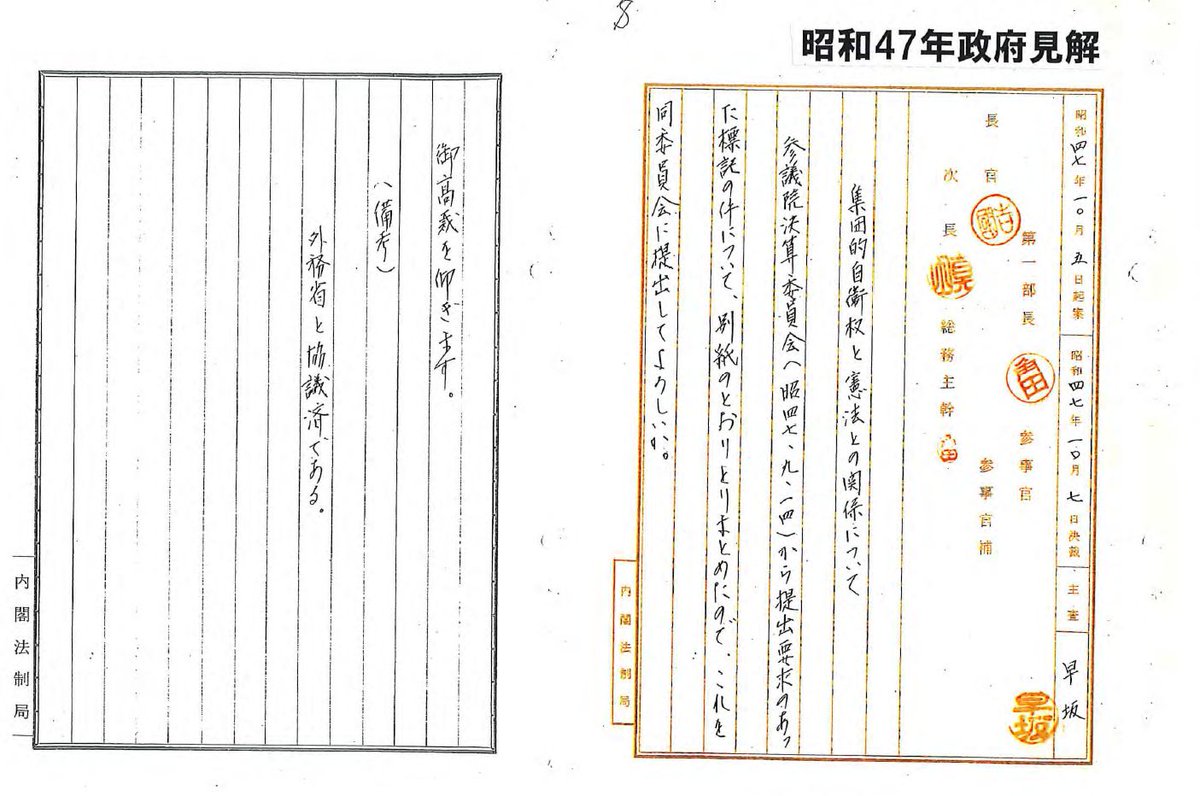 8
昭和47年政府見解
昭和四七年一〇月五日起案
昭和四七年一〇月七日決裁
主査
早坂
早坂
第一部長
角田
参事官
参事官補
長官
吉國
次長
総務主幹
集団的自衛権と憲法との関係について
参議院決算委員会(昭四七、九、一四)から提出要求のあっ
た標記の件について、別紙のとおりとりまとめたので、これを
同委員会に提出してよろしいか。
内閣法制局
御高裁を仰ぎます。
(備考)
外務省と協議済である。
内閣法制局